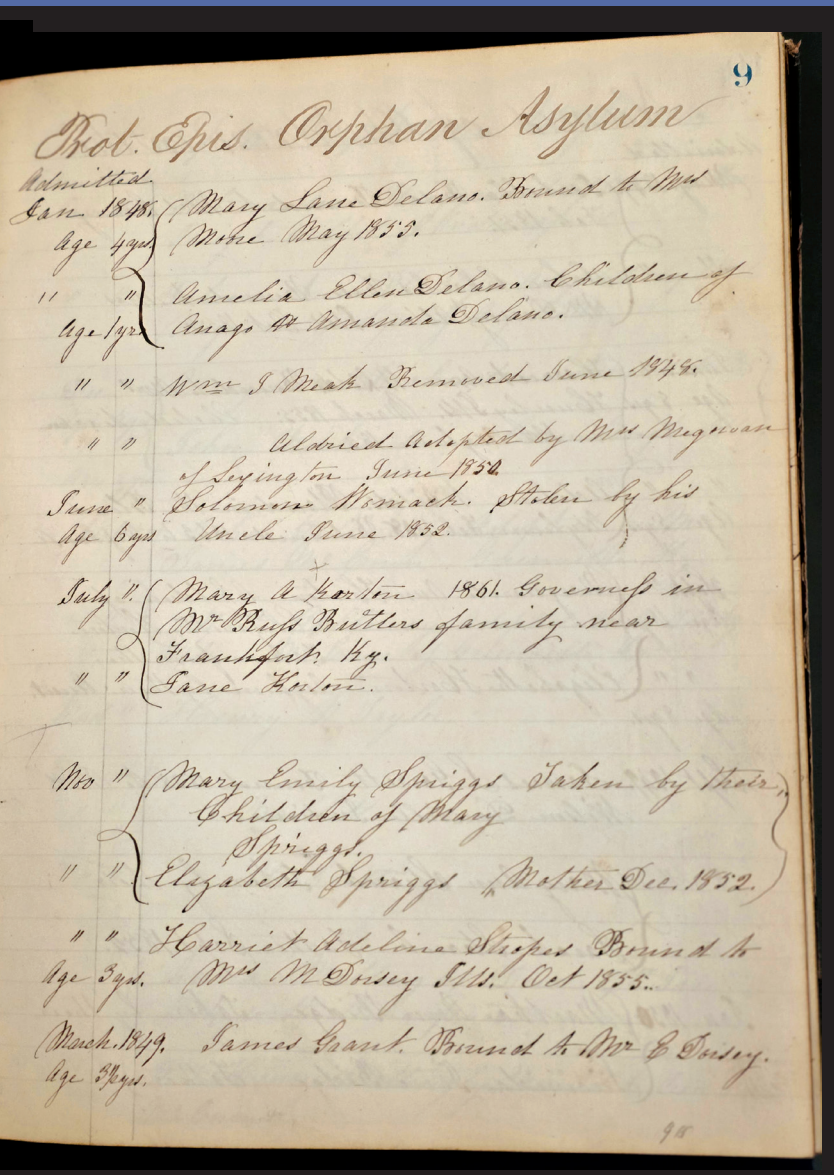 9
Prot. Epis. Orphan Asylum
Admitted
Jan 1848. Mary Lane Delano. Bound to Mrs
Age 4yrs Mone May 1855.
" " Amelia Ellen Delano. Children of
Age 1yr. Anago & Amanda Delano.
" " Wm J Meak Removed June 1848.
" " Aldried Adopted by Mrs Megowan
of Lexington June 1850.
June " Solomon Womack. Stolen by his
Age 6yrs Uncle June 1852.
July ". Mary A Horton 1861. Governess in
Mr Russ Butlers family near
Frankfort. Ky.
" " Jane Horton.
Nov " Mary Emily Spriggs Taken by their
Children of Mary
Spriggs.
" " Elizabeth Spriggs Mother Dec. 1852.
" " Harriet Adeline Stopes Bound to
Age 3yrs. Mrs M Dorsey Ills. Oct 1855.
March. 1849. James Grant. Bound to Mr E Dorsey.
Age yrs.